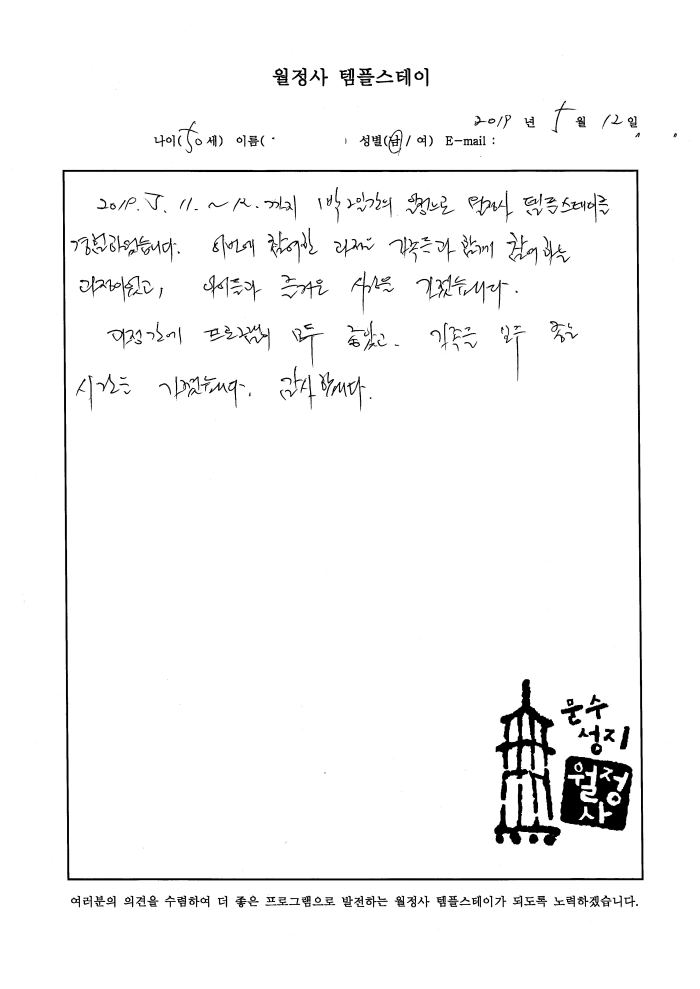 월정사 템플스테이
2019 년 5 월 12 일
나이(50세) 이름( ) 성별(남/여) E-mail :
2019. 5. 11. ~ 12. 까지 1박2일간의 일정으로 월정사 템플스테이를
경험하였습니다. 이번에 참여한 과정은 가족들과 함께 참여하는
과정이었고, 아이들과 즐거운 시간을 가졌습니다.
프로그램이 모두 좋았고, 가족들 모두 좋은
시간을 가졌습니다. 감사합니다.
문수
성지
월정
사
여러분의 의견을 수렴하여 더 좋은 프로그램으로 발전하는 월정사 템플스테이가 되도록 노력하겠습니다.